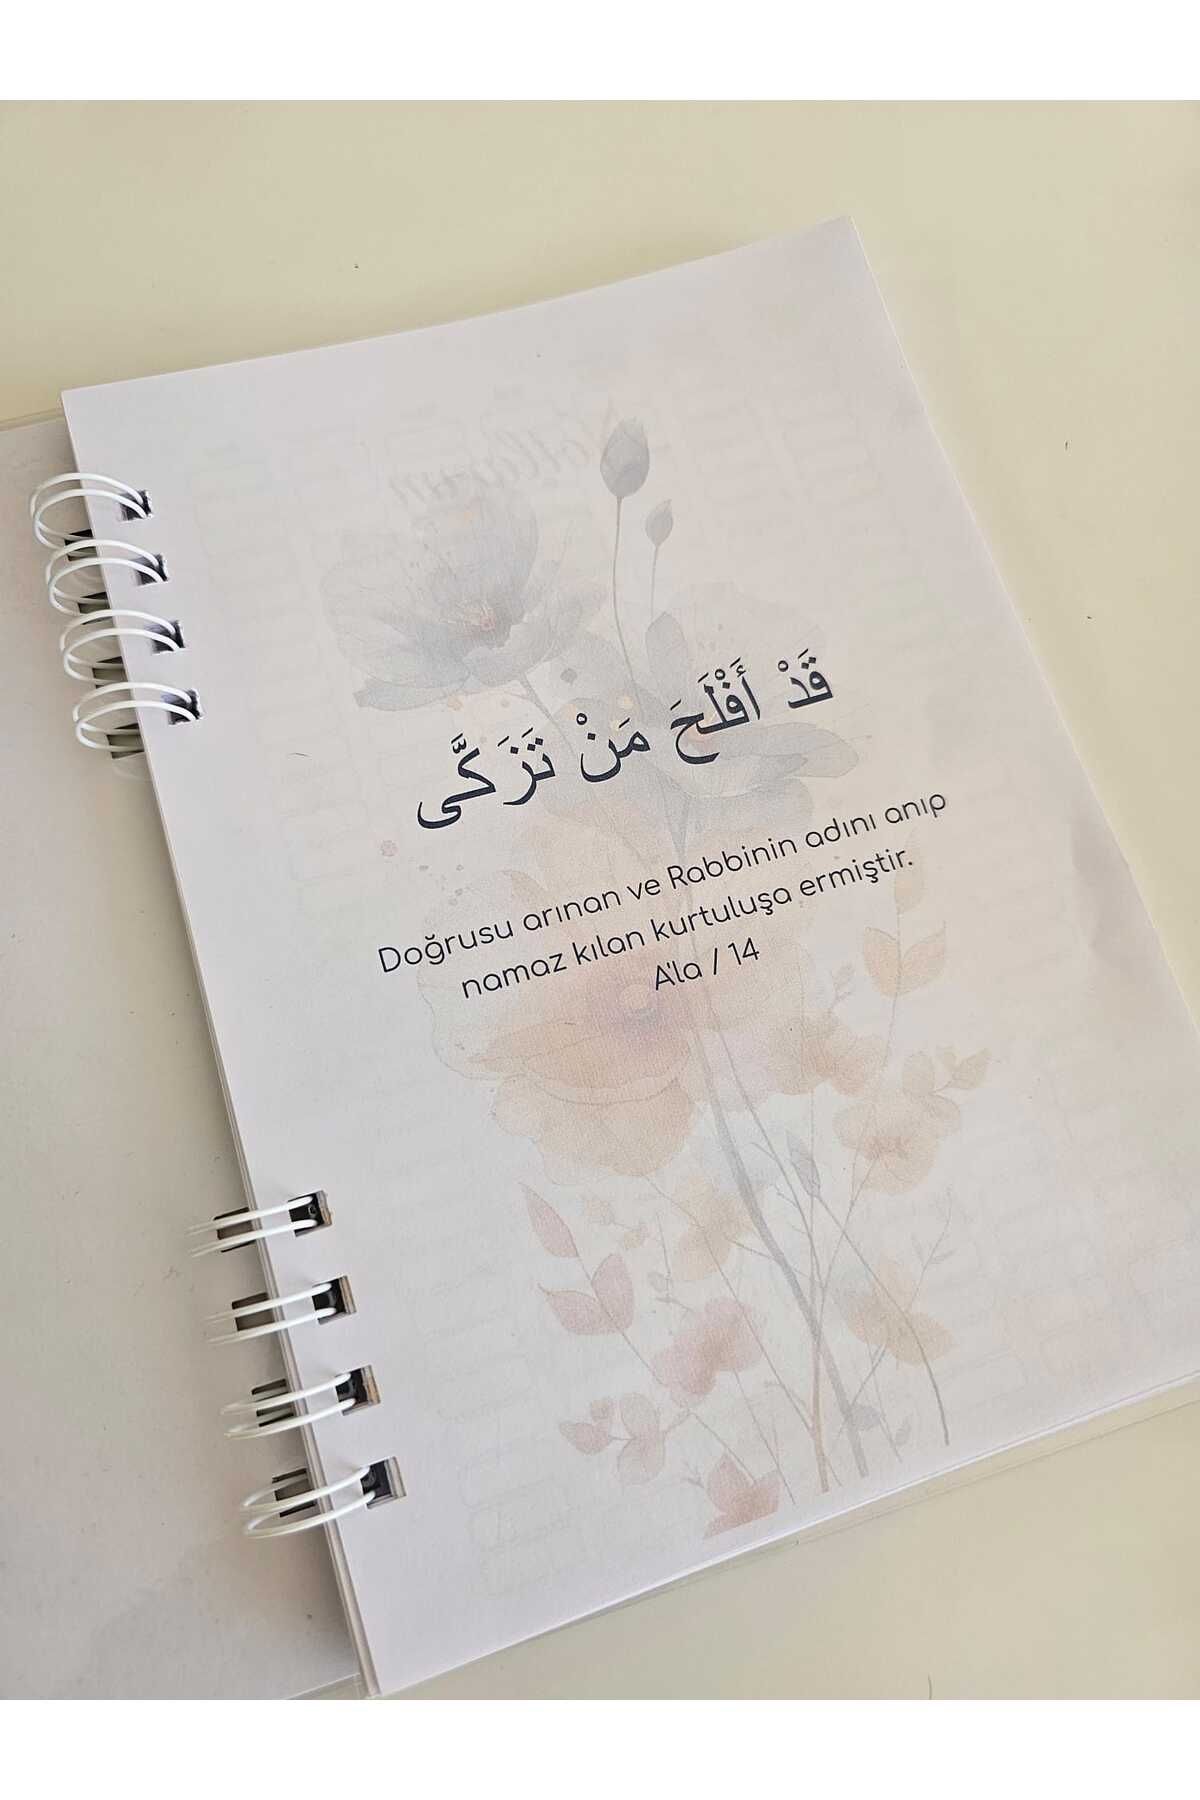 قَدْ أَفْلَحَ مَنْ تَزَكَّى
Doğrusu arınan ve Rabbinin adını anıp
namaz kılan kurtuluşa ermiştir.
A'la / 14